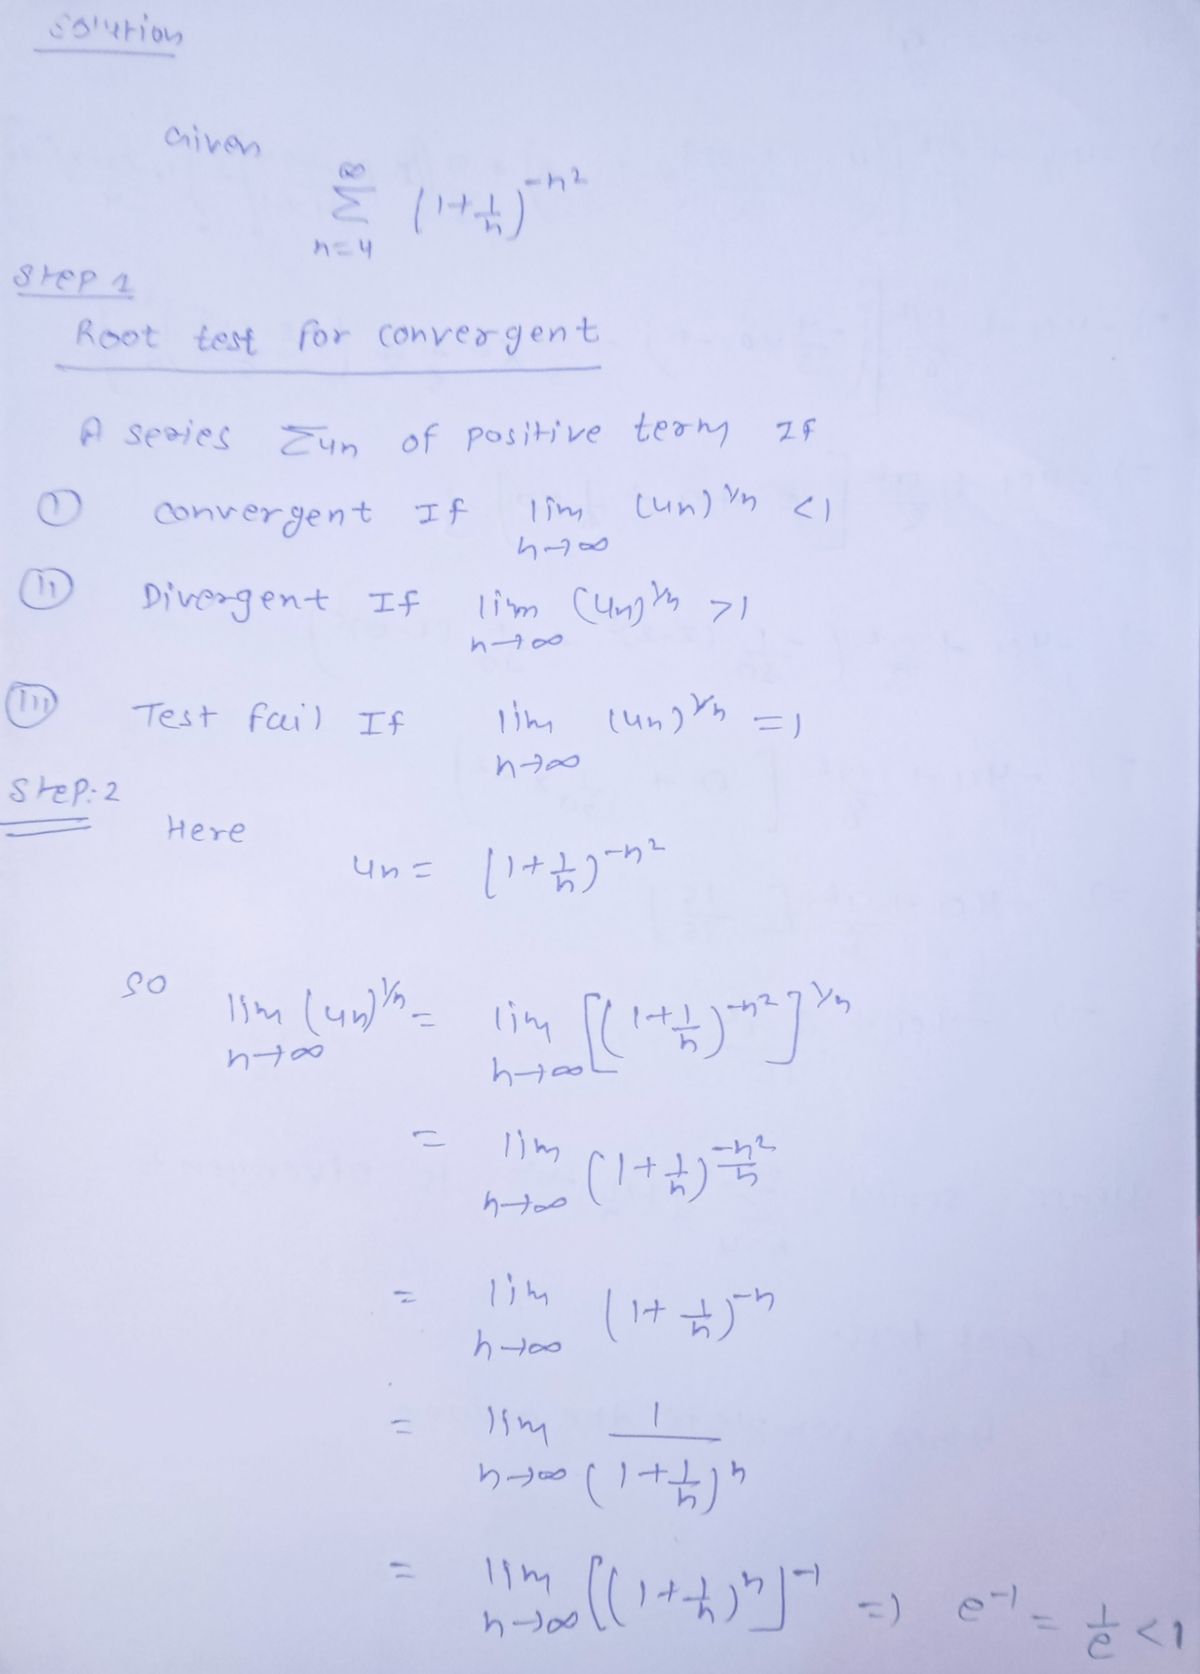 Solution
Given
∞
Σ (1+1/n)^-n2
n=4
Step 1
Root test for convergent
A series Σun of positive term If
(i) convergent If lim (un)^1/n <1
n→∞
(ii) Divergent If lim (un)^1/n >1
n→∞
(iii) Test fail If lim (un)^1/n =1
n→∞
Step:2
Here
un = (1+1/n)^-n2
so lim (un)^1/n = lim [(1+1/n)^-n2]^1/n
n→∞ n→∞
= lim (1+1/n)^-n2/n
n→∞
= lim (1+1/n)^-n
n→∞
= lim 1/(1+1/n)^n
n→∞
= lim [(1+1/n)^n]^-1 => e^-1 = 1/e <1
n→∞